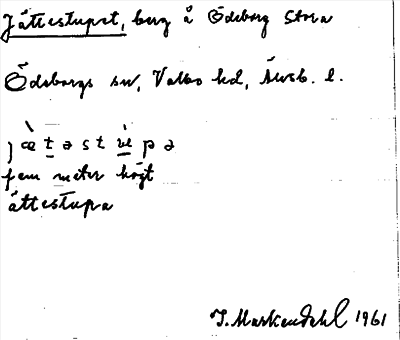 Jättestupet, berg å Ödeborg Stora
Ödeborgs sn, Valbo hd, Älvsb. l.
fem meter högt
ättestupa
J. Markendahl 1961